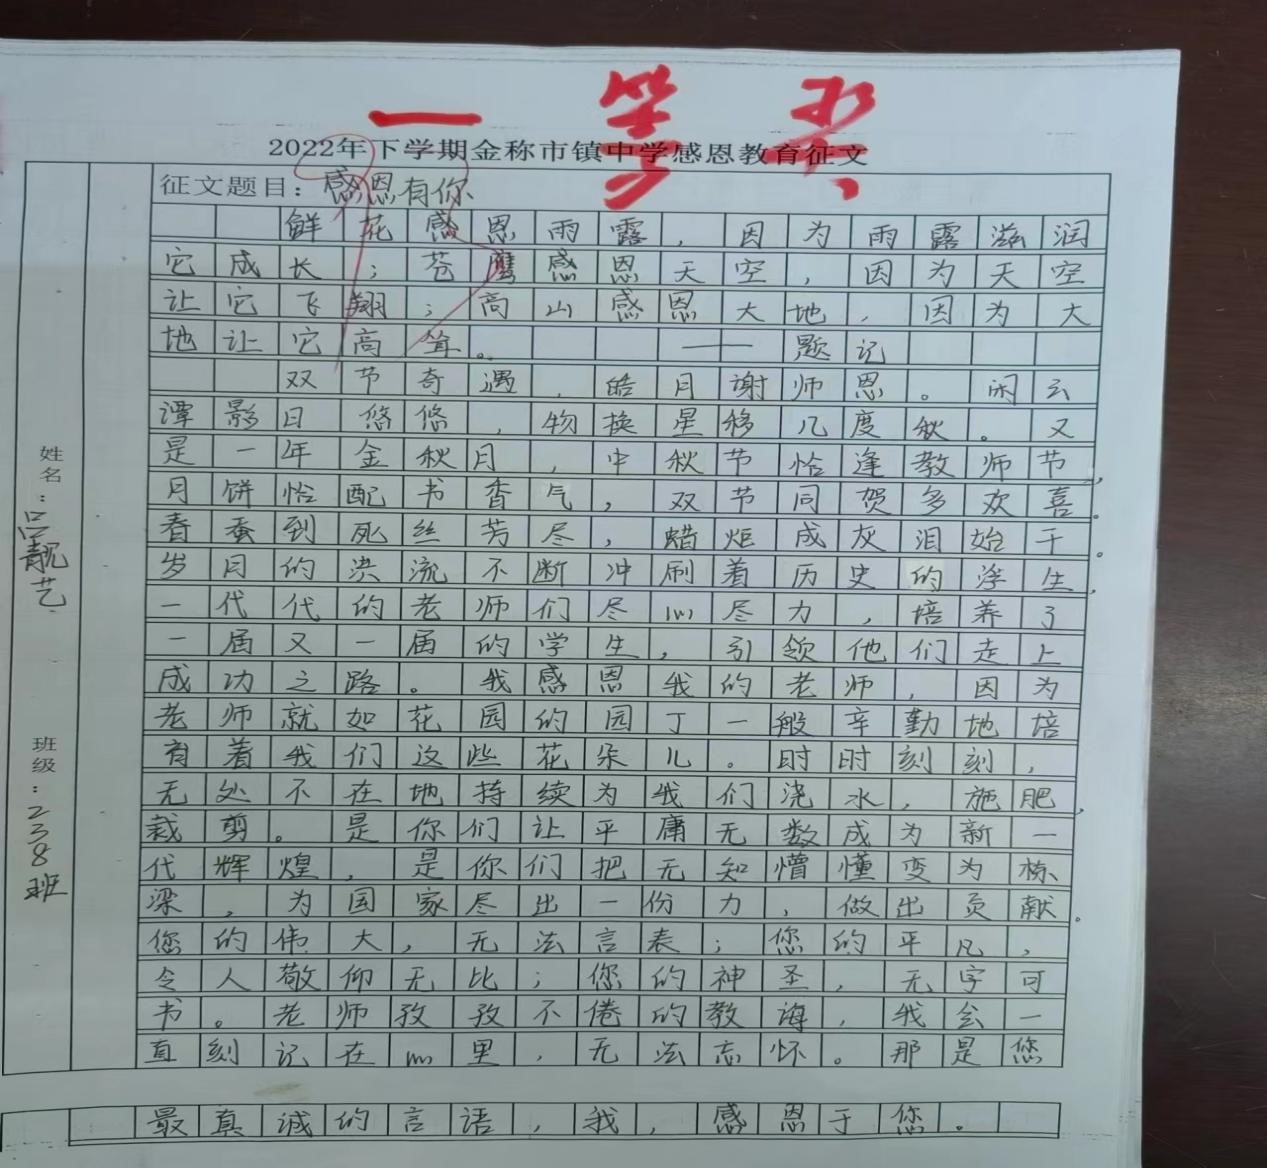 一等奖
2022年下学期金称市镇中学感恩教育征文
征文题目：感恩有你
鲜花感恩雨露，因为雨露滋润
它成长；苍鹰感恩天空，因为天空
让它飞翔；高山感恩大地，因为大
地让它高耸。——题记
双节奇遇，皓月谢师恩。闲云
潭影日悠悠，物换星移几度秋。又
是一年金秋月，中秋节恰逢教师节，
月饼恰配书香气，双节同贺多欢喜。
春蚕到死丝芳尽，蜡炬成灰泪始干。
岁月的洪流不断冲刷着历史的浮生，
一代代的老师们尽心尽力，培养了
一届又一届的学生，引领他们走上
成功之路。我感恩我的老师，因为
老师就如花园的园丁一般辛勤地培
育着我们这些花朵儿。时时刻刻，
无处不在地持续为我们浇水，施肥，
裁剪。是你们让平庸无数成为新一
代辉煌，是你们把无知懵懂变为栋
梁，为国家尽出一份力，做出贡献。
您的伟大，无法言表；您的平凡，
令人敬仰无比；您的神圣，无字可
书。老师孜孜不倦的教诲，我会一
直刻记在心里，无法忘怀。那是您
最真诚的言语，我，感恩于您。
姓名：吕靓艺
班级：238班